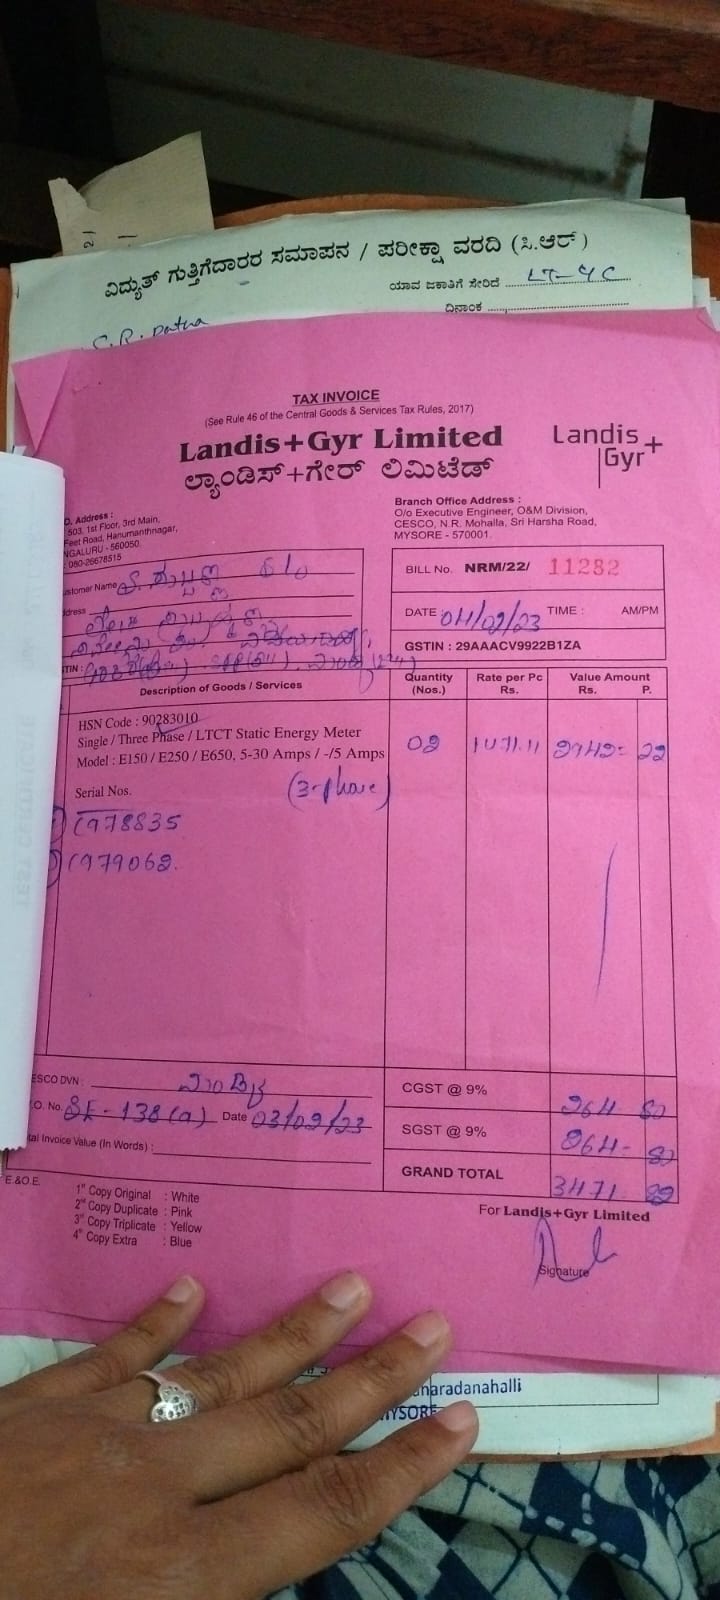 ವಿದ್ಯುತ್ ಗುತ್ತಿಗೆದಾರರ ಸಮಾಪನ / ಪರೀಕ್ಷಾ ವರದಿ (ಸಿ.ಆರ್)
ಯಾವ ಜಕಾತಿಗೆ ಸೇರಿದೆ LT-4C
ದಿನಾಂಕ
C.R. Patna
TAX INVOICE
(See Rule 46 of the Central Goods & Services Tax Rules, 2017)
Landis+Gyr Limited
ಲ್ಯಾಂಡಿಸ್+ಗೇರ್ ಲಿಮಿಟೆಡ್
Landis+
Gyr
Address :
503, 1st Floor, 3rd Main,
Feet Road, Hanumanthnagar,
NGALURU - 560050.
: 080-26678515
Branch Office Address :
O/o Executive Engineer, O&M Division,
CESCO, N.R. Mohalla, Sri Harsha Road,
MYSORE - 570001.
ustomer Name
dress
TIN :
BILL No. NRM/22/ 11282
DATE : TIME : AM/PM
GSTIN : 29AAACV9922B1ZA
Description of Goods / Services
Quantity (Nos.)
Rate per Pc Rs.
Value Amount Rs. P.
HSN Code : 90283010
Single / Three Phase / LTCT Static Energy Meter
Model : E150 / E250 / E650, 5-30 Amps / -/5 Amps
02 1471.11 2942= 22
Serial Nos. (3-phase)
978835
979062.
ESCO DVN :
.O. No. SE-138(a) Date 03/02/23
tal Invoice Value (In Words) :
CGST @ 9% 264 80
SGST @ 9% 264- 80
GRAND TOTAL 3471 82
E.&O.E.
1st Copy Original : White
2nd Copy Duplicate : Pink
3rd Copy Triplicate : Yellow
4th Copy Extra : Blue
For Landis+Gyr Limited
Signature
naradanahalli
MYSORE